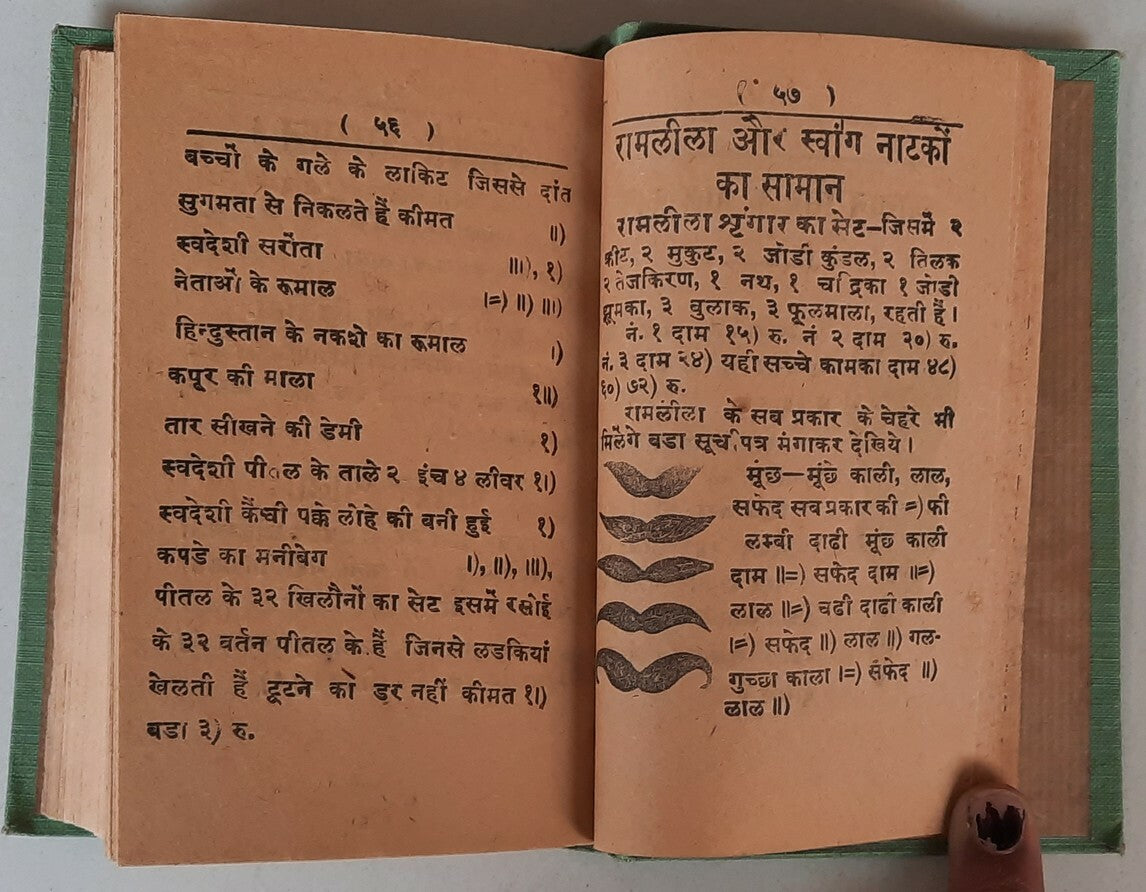 ( ५६ )
बच्चों के गले के लाकिट जिससे दांत
सुगमता से निकलते हैं कीमत ॥)
स्वदेशी सरौता ॥।), १)
नेताओं के रूमाल ।=) ॥) ॥।)
हिन्दुस्तान के नकशे का रूमाल ।)
कपूर की माला १॥)
तार सीखने की डेमी १)
स्वदेशी पीतल के ताले २ इंच ४ लीवर १।)
स्वदेशी कैंची पक्के लोहे की बनी हुई १)
कपडे का मनीबेग ।), ॥), ॥।),
पीतल के ३२ खिलौनों का सेट इसमें रसोई
के ३२ वर्तन पीतल के हैं जिनसे लडकियां
खेलती हैं टूटने को डर नहीं कीमत १।)
बडा ३) रु.
( ५७ )
रामलीला और स्वांग नाटकों
का सामान
रामलीला श्रृंगार का सेट—जिसमें २
क्रीट, २ मुकुट, २ जोडी कुंडल, २ तिलक
२ तेजकिरण, १ नथ, १ चद्रिका १ जोडी
झूमका, ३ वुलाक, ३ फूलमाला, रहती हैं।
नं. १ दाम १५) रु. नं २ दाम २०) रु.
नं. ३ दाम २४) यही सच्चे कामका दाम ४८)
६०) ७२) रु.
रामलीला के सब प्रकार के चेहरे भी
मिलेंगे बडा सूचीपत्र मंगाकर देखिये।
मूंछ—मूंछे काली, लाल,
सफेद सब प्रकार की =) फी
लम्बी दाढी मूंछ काली
दाम ॥=) सफेद दाम ॥=)
लाल ॥=) चढी दाढी काली
।=) सफेद ॥) लाल ॥) गल-
गुच्छा काला ।=) सफेद ॥)
लाल ॥)